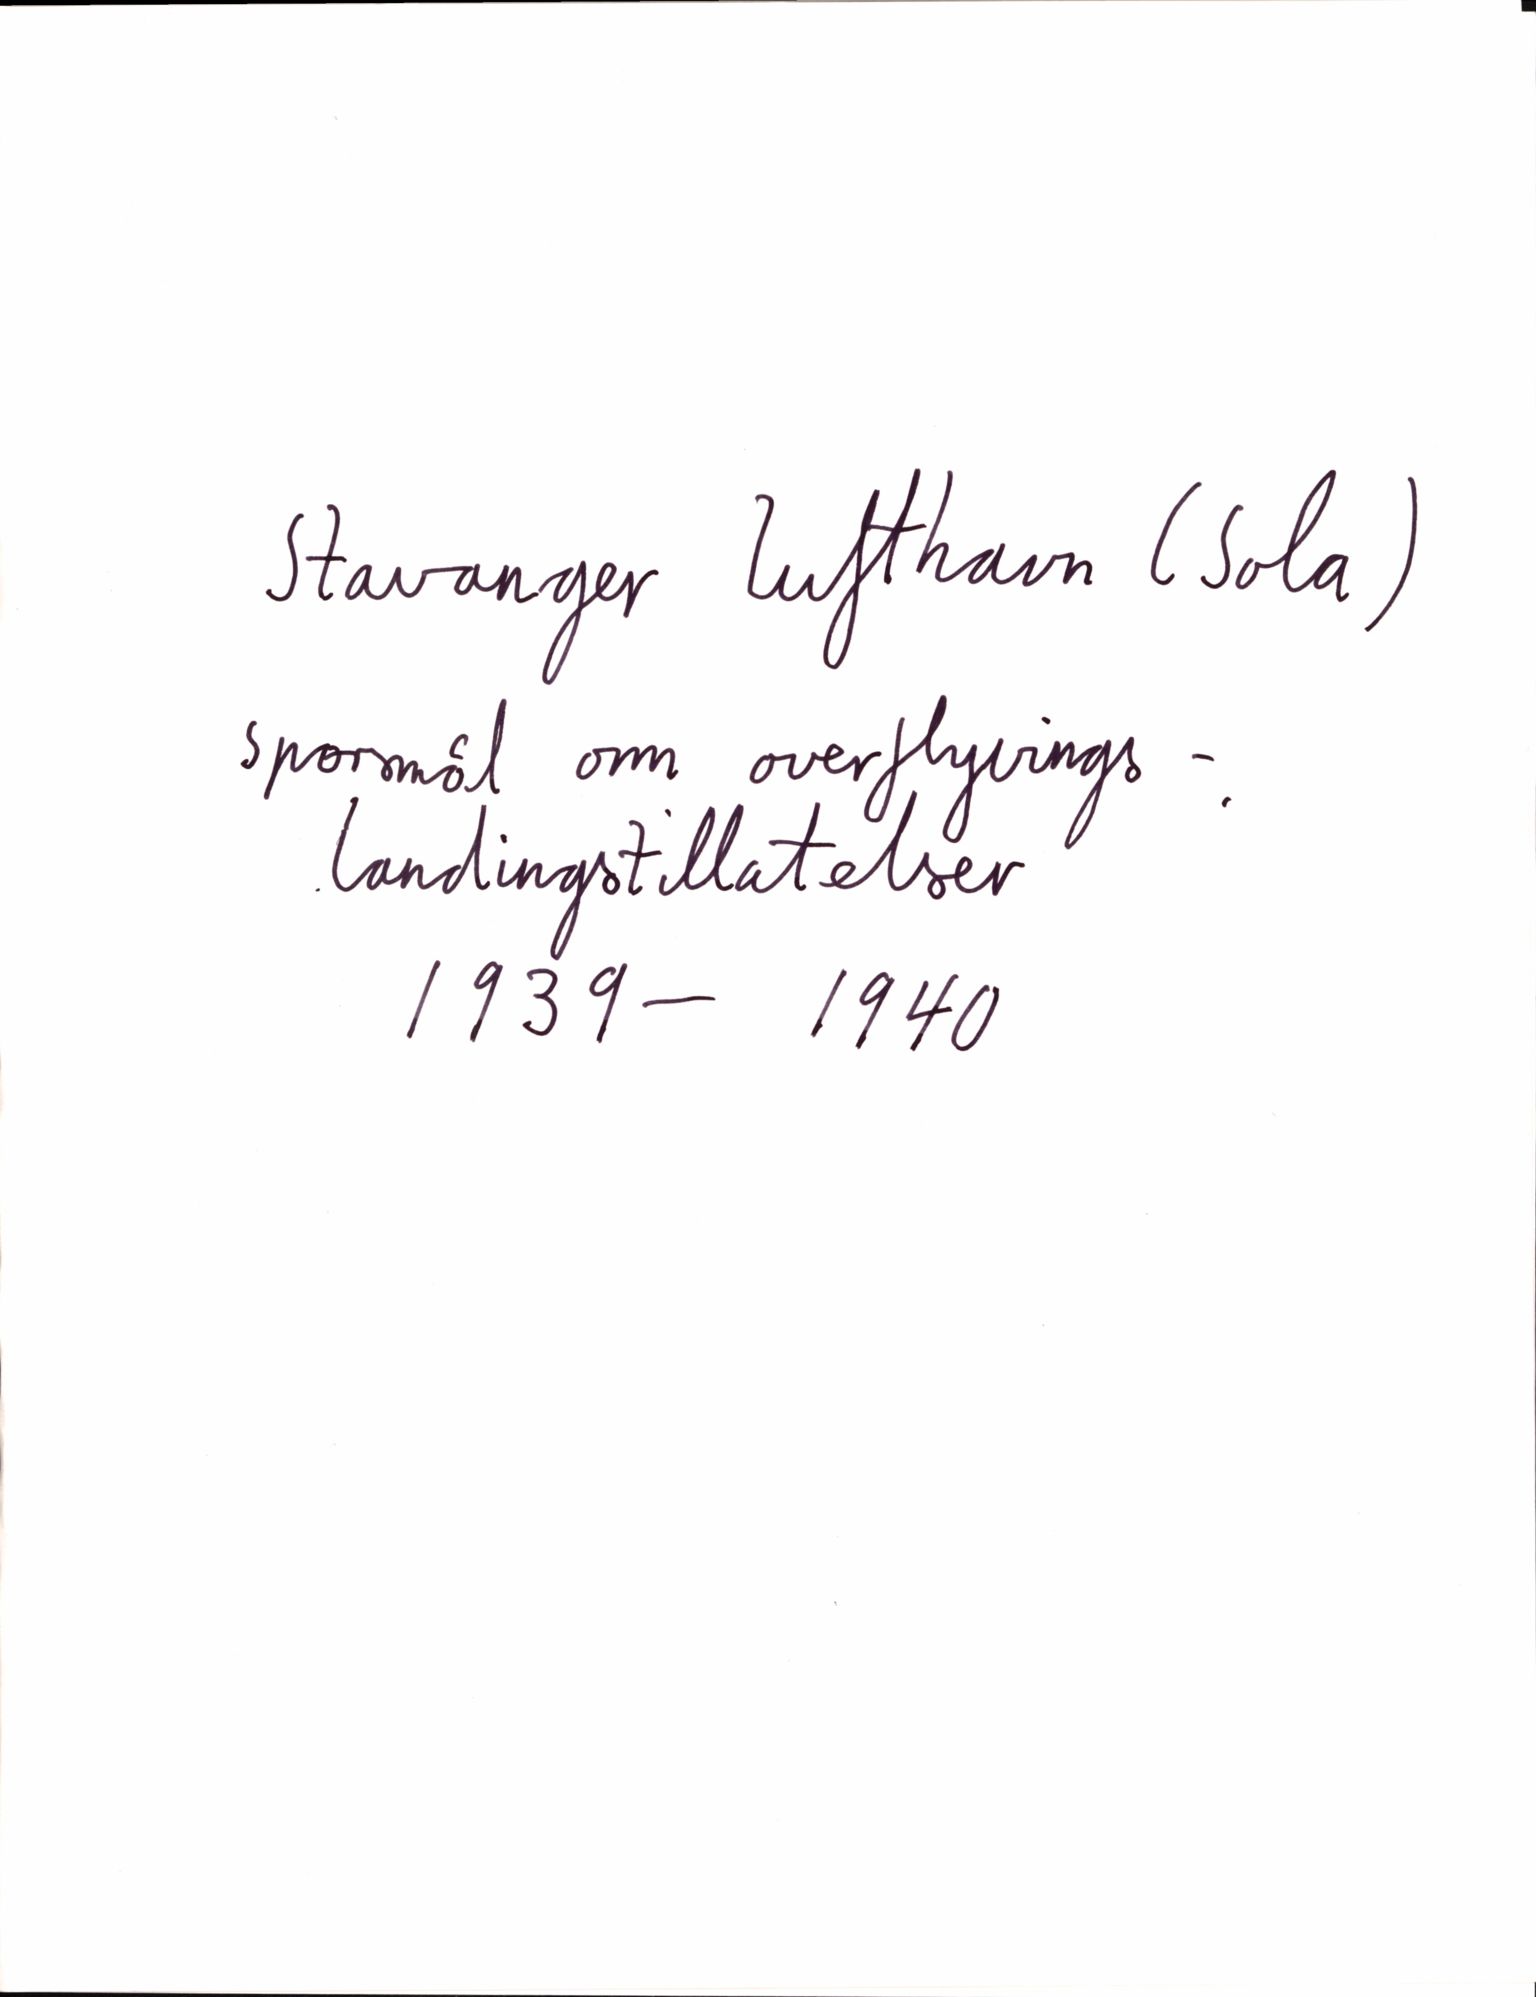 Stavanger lufthavn (Sola)
spørsmål om overflyvings -
landingstillatelser
1939 - 1940